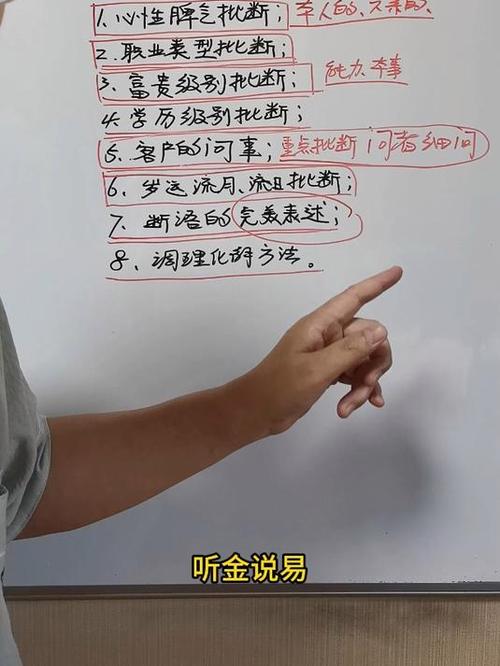 1. 心性脾气批断；本人的、父亲的、
2. 职业类型批断；
3. 富贵级别批断；能力、本事
4. 学历级别批断；
5. 客户的问事；重点批断 问者细问
6. 岁运流月、流日批断；
7. 断语的完美表述；
8、调理化解方法。
听金说易